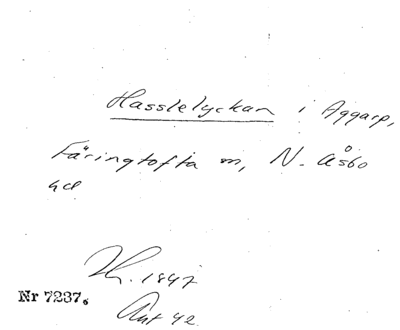 Hasslelyckan i Aggarp,
Färingtofta m, N. Åsbo
hd
H. 1847
Nr 7237.
Ant 42